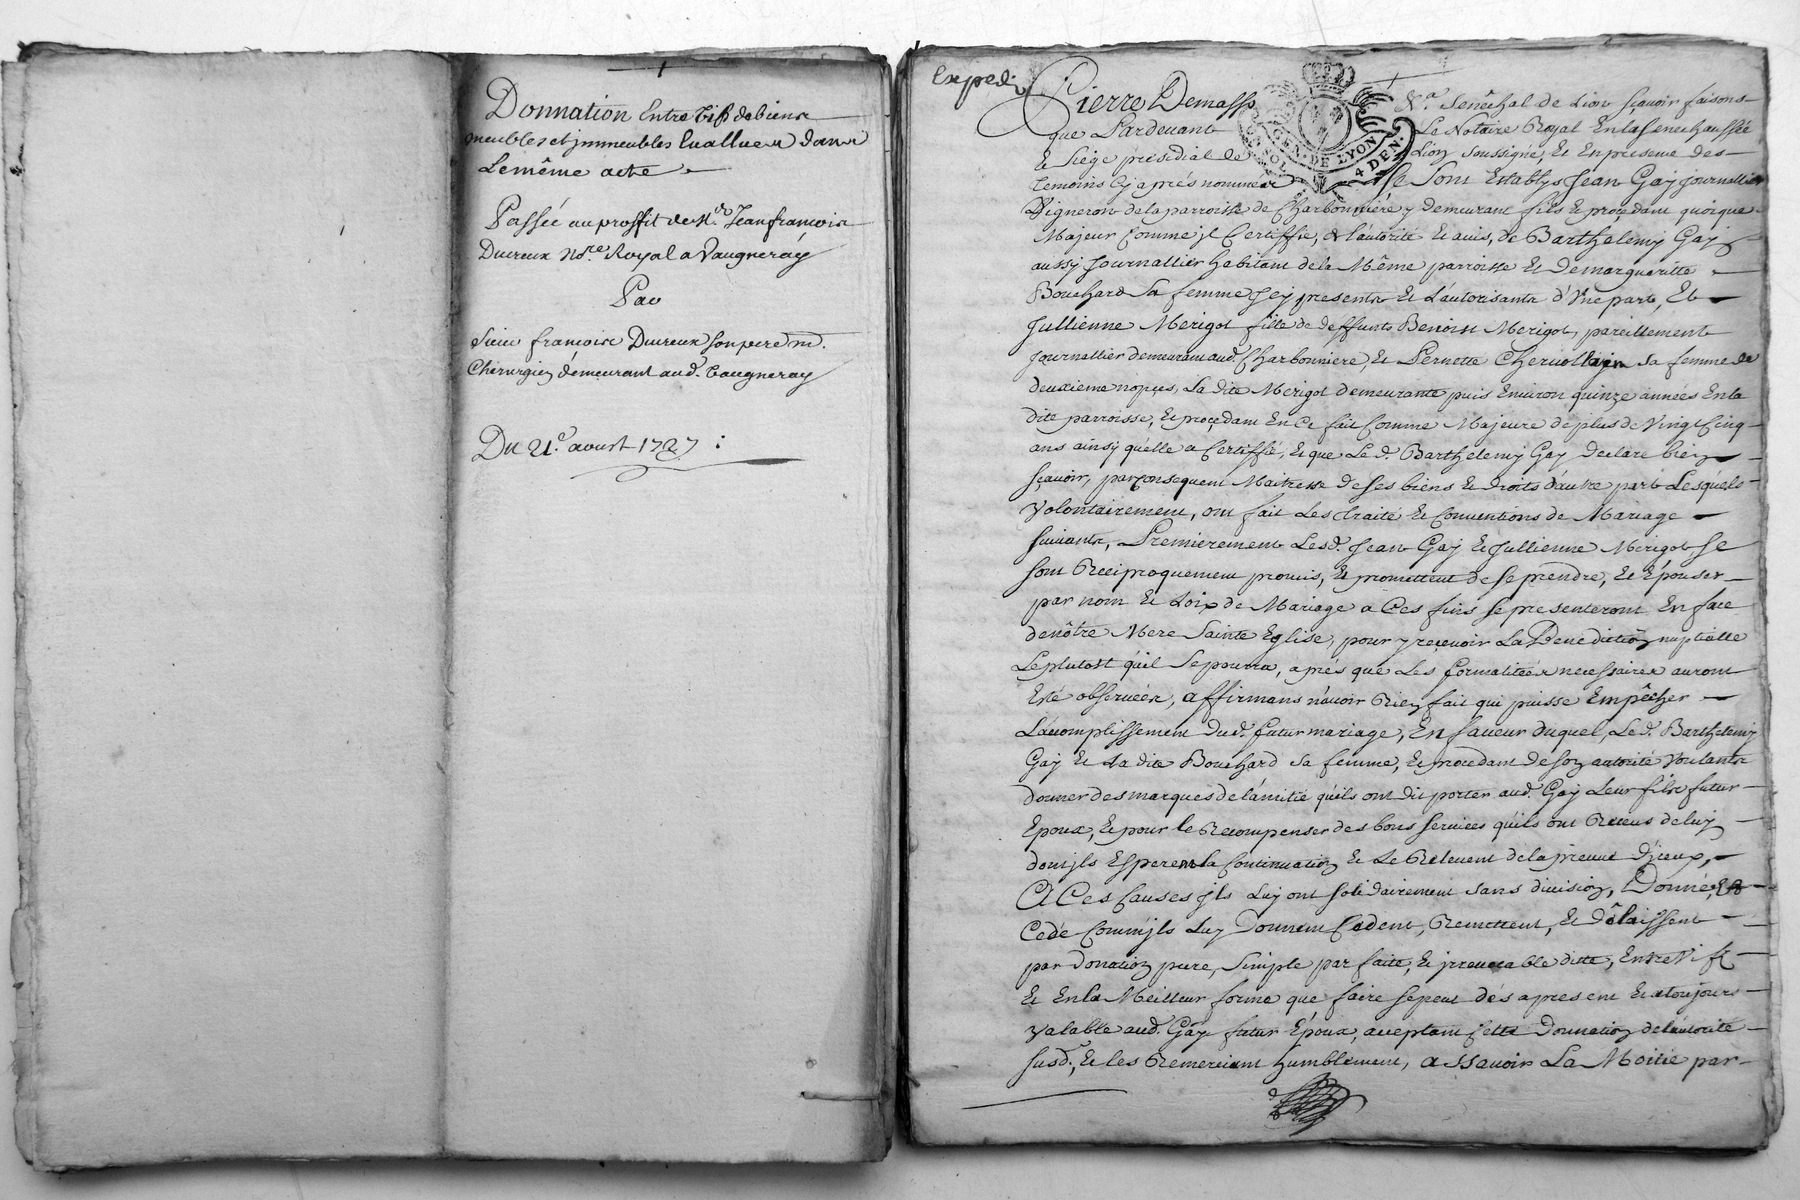 Donnation Entre Vifs de biens
meubles et jmmeubles Evalluez dans
Le même acte
Passée au proffit de Mr. Jean francois
Ducreux Nore. Royal a Vaugneray
Par
Sieur francois Ducreux son pere md.
Chirurgien démeurant aud. Vaugneray
Du 21e. aoust 1727 :
Expedié
Pierre Demasso Sénéchal de Lion sçavoir faisons
que Pardevant Le Notaire Royal En la senechaussée
GEN. DE LYON
4 DEN.
Et siége présidial de Lion soussigné, Et En presence des
temoins cy aprés nommés Se Sont Establys Jean Gay journallier
Vigneron de la parroisse de Charbonniére y demeurant fils Et procedant quoique
Majeur comme jl Certiffie, de l'autorité Et avis, de Barthelemy Gay
aussy Journallier habitant de la Même parroisse Et de margueritte
Bouchard sa femme Jcy presents Et L'autorisants d'Vne part, Et
Jullienne Merigot fille de deffunts Benoist Merigot, pareillement
journallier demeurant aud. Charbonniere, Et Pernette sa femme de
deuxieme nopces, La dite Merigot demeurante puis Environ quinze années En la
dite parroisse, Et procedant En Ce fait Comme Majeure de plus de Vingt Cinq
ans ainsy quelle a Certiffié, Et que Le d. Barthelemy Gay declare bien
sçavoir, par consequent Maitresse de ses biens Et droits d'autre part Lesquels
Volontairement, ont fait Les traité Et Conventions de Mariage
suivants, Premierement Lesd. Jean Gay Et Jullienne Merigot se
sont Reciproquement promis, Et promettent de se prendre, Et Épouser
par nom Et Loix de Mariage a Ces fins se presenteront En face
de nôtre Mere Sainte Eglise, pour y recevoir La Benediction nuptialle
Le plutost qu'il se pourra, aprés que Les formalitées necessaires auront
Esté observéés, affirmans n'avoir Rien fait qui puisse Empêcher
L'acomplissement dud. futur mariage, En faveur duquel, Le d. Barthelemy
Gay Et La dite Bouchard sa femme, Et procedant de son autorité Voulants
donner des marques de l'amitié qu'ils ont dit porter aud. Gay Leur fils futur
Epoux, Et pour le Recompenser des bons services qu'ils ont Receus de luy
dont jls Esperent la Continuation Et Le Relevent de la preuve d'jceux,
A Ces Causes jls Luy ont solidairement sans division, Donné, Et
Cedé Comm'jls Luy Donnent Cedent, Remettent, Et Délaissent
par donation pure, simple parfaite, Et jrrevocable ditte, Entre Vifs
Et En la Meilleur forme que faire se peut dés apresent Et atoujours
valable aud. Gay futur Époux, aceptant Cette Donnation de l'autorité
susd., Et les Remerciant humblement, assavoir La Moitié par